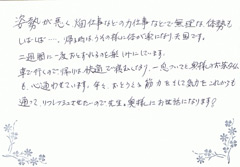 姿勢が悪く畑仕事などの力仕事などで無理な体勢も
しばしば…。帰る時はうその様に体が楽になり大国です。
二週間に一度おとずれるのを楽しみにしています。
車で行くので帰りは快適で寝むしたり、一息ついても奥様のお茶
も心適わせています。年々、おとろえる筋力をそして気力をこれからも
通って、リフレッシュさせたいので先生、奥様にお世話になります?